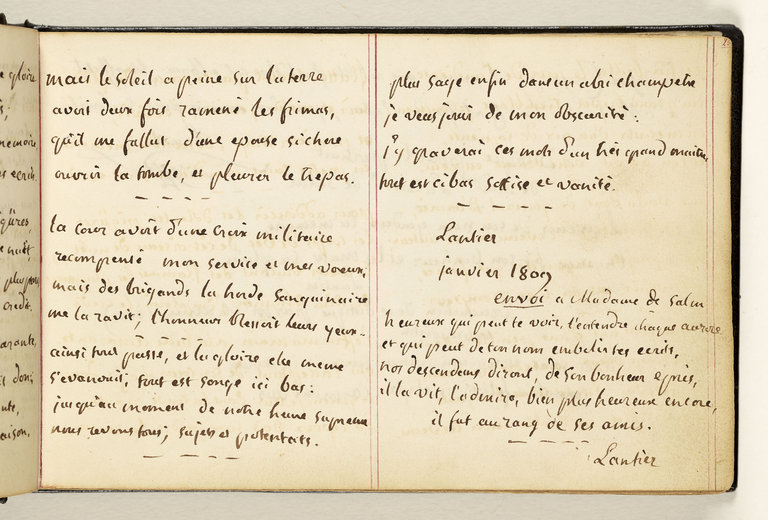 e gloire
s;
memoire
es ecrits.
igüres,
e nuit
plus
credit.
arante,
don;
nte,
aison,
mais le soleil a peine sur la terre
avoit deux fois ramené les frimas,
qu'il me fallut d'une epouse si chere
ouvrir la tombe, et pleurer le trepas.
la cour avoit d'une croix militaire
recompensé mon service et mes voeux,
mais des brigands la horde sanguinaire
me la ravit; l'honneur blessoit leurs yeux.
ainsi tout passe, et la gloire elle meme
s'evanouit, tout est songe ici bas:
jusqu'au moment de notre heure supreme
nous revons tous, sujets et potentats.
plus sage enfin dans un abri champetre
je veus jouir de mon obscurité:
j'y graverai ces mots d'un très grand maitre,
tout est ci bas sottise et vanité.
Lantier
janvier 1809
envoi a Madame de Salm
heureux qui peut te voir, t'entendre chaque aurore
et qui peut de ton nom embelir ses ecrits,
nos descendans diront, de son bonheur epris,
il la vit, l'admira, bien plus heureux encore,
il fut au rang de ses amis.
Lantier